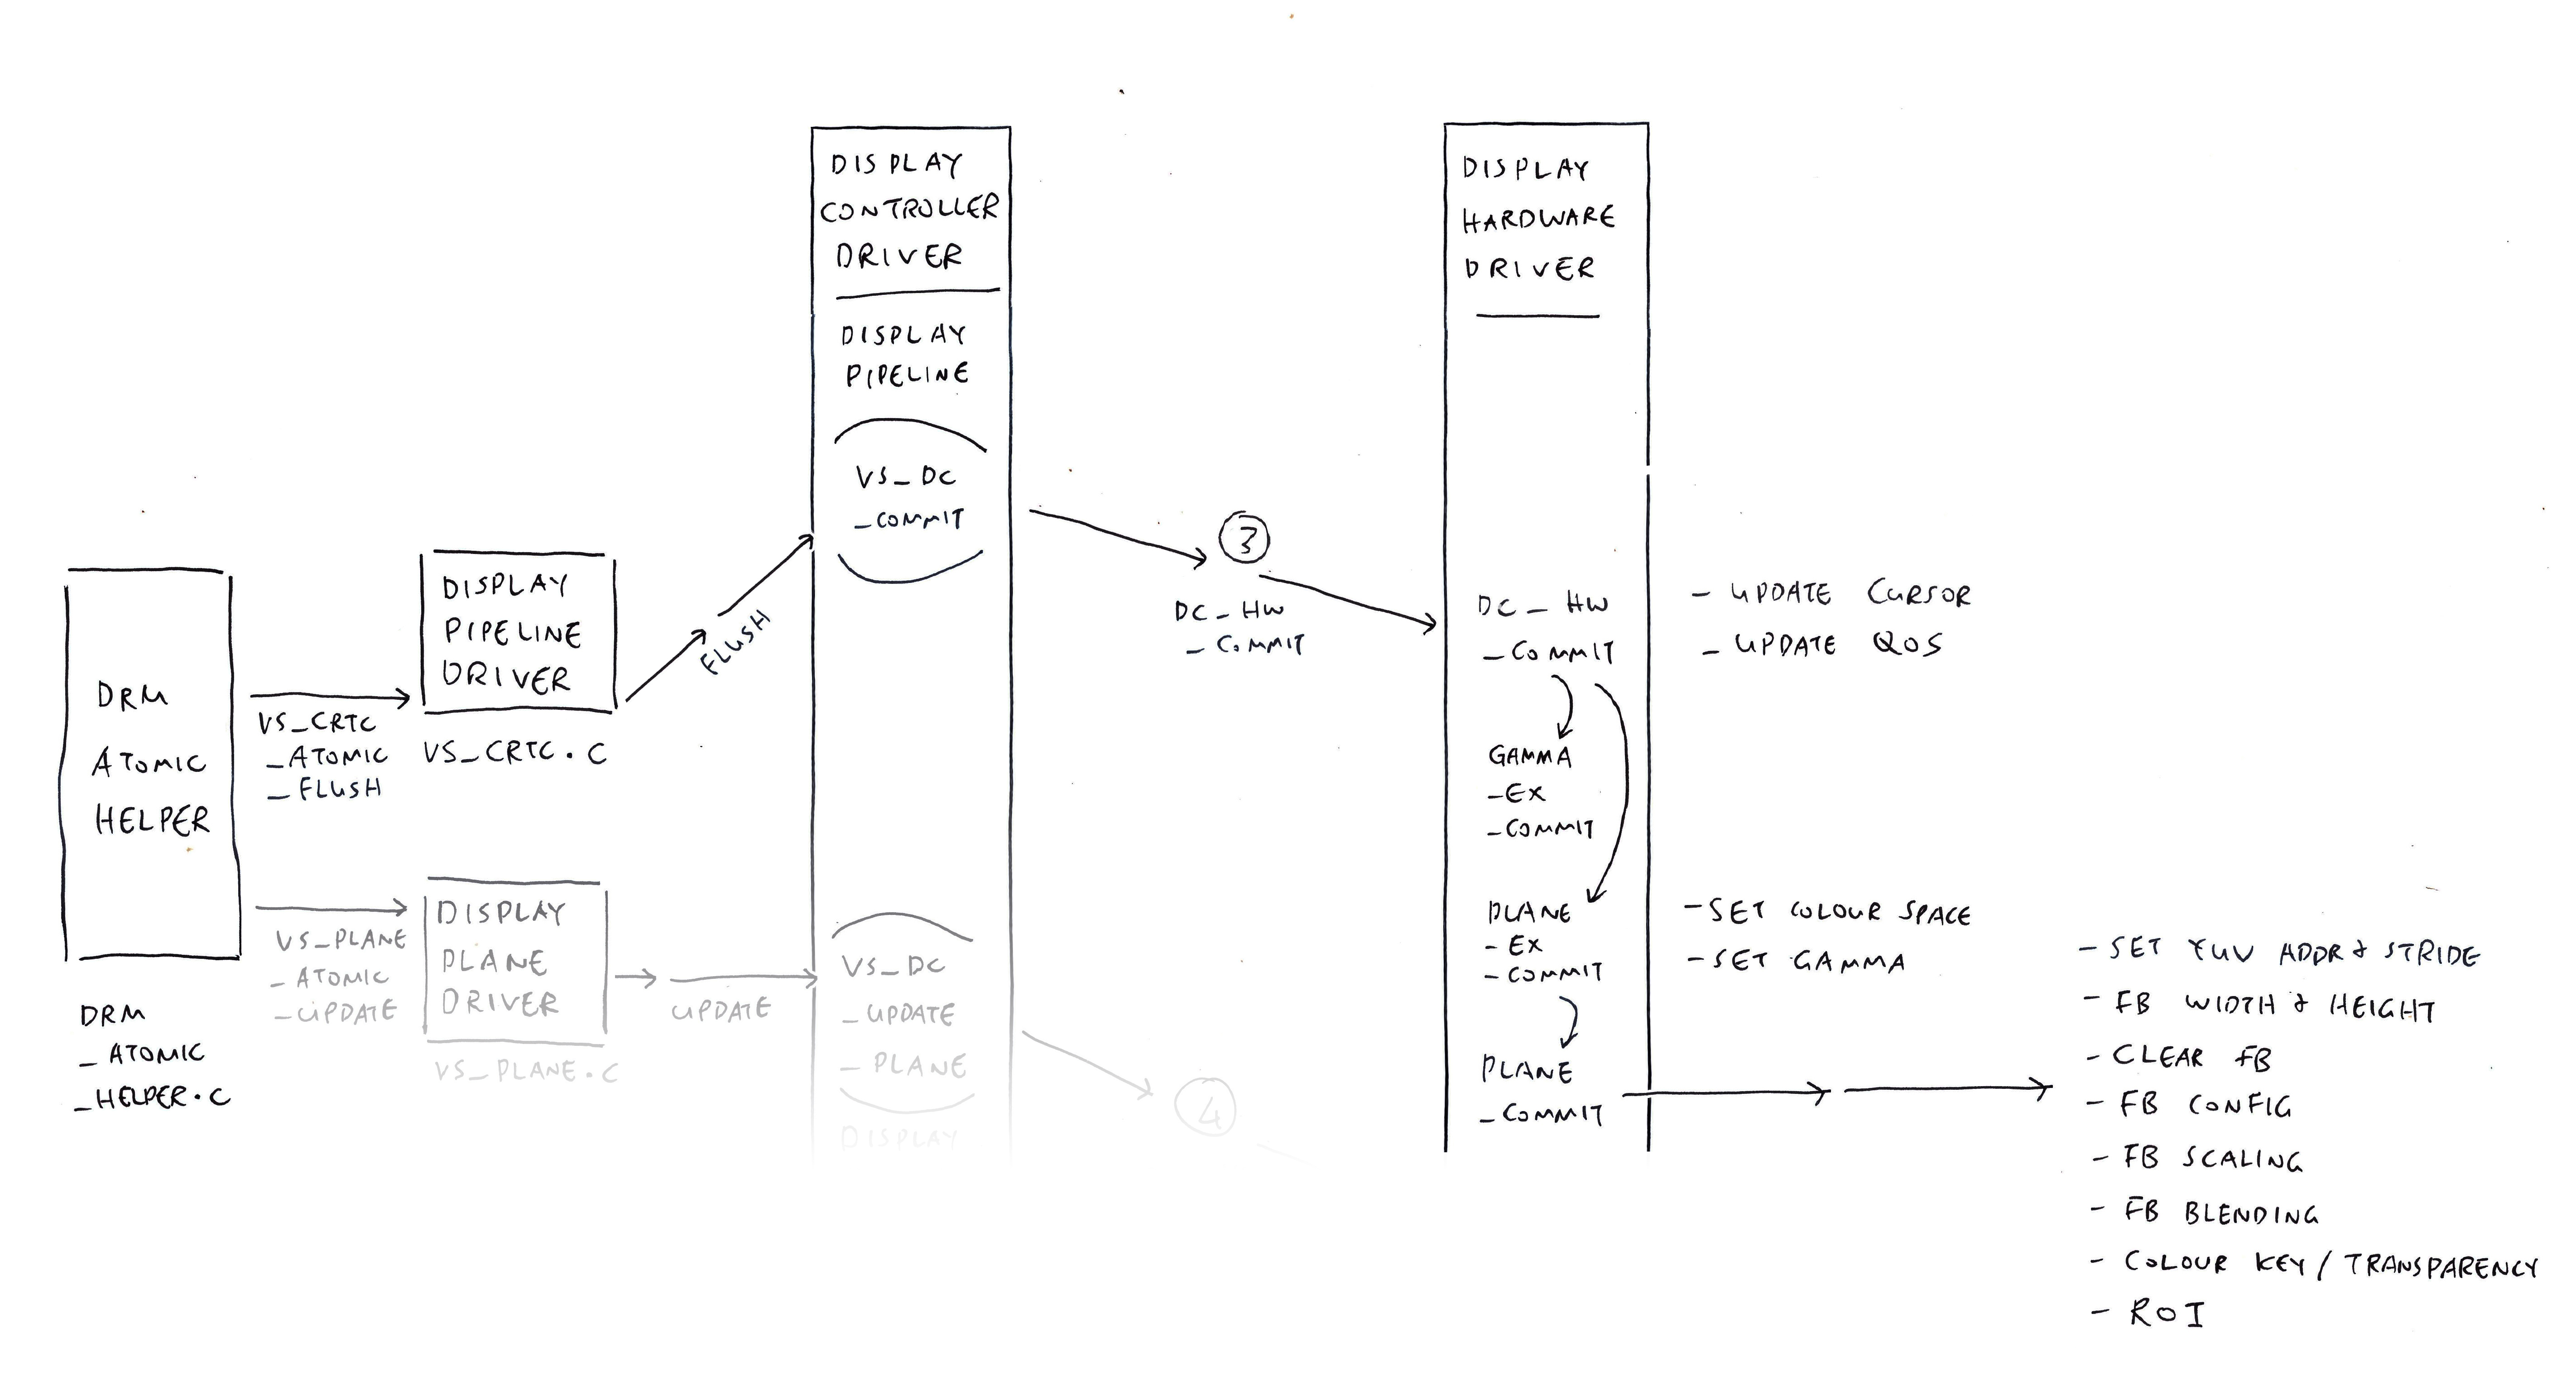 DRM
ATOMIC
HELPER
DRM
_ ATOMIC
_HELPER.C
VS_CRTC
_ATOMIC
_FLUSH
DISPLAY
PIPELINE
DRIVER
VS_CRTC.C
FLUSH
VS_PLANE
_ATOMIC
_UPDATE
DISPLAY
PLANE
DRIVER
VS_PLANE.C
UPDATE
DISPLAY
CONTROLLER
DRIVER
DISPLAY
PIPELINE
VS_DC
_COMMIT
VS_DC
_UPDATE
_PLANE
DISPLAY
3
DC_HW
_COMMIT
4
DISPLAY
HARDWARE
DRIVER
DC_HW
_COMMIT
GAMMA
_EX
_COMMIT
PLANE
_EX
_COMMIT
PLANE
_COMMIT
- UPDATE CURSOR
- UPDATE QOS
- SET COLOUR SPACE
- SET GAMMA
- SET YUV ADDR & STRIDE
- FB WIDTH & HEIGHT
- CLEAR FB
- FB CONFIG
- FB SCALING
- FB BLENDING
- COLOUR KEY / TRANSPARENCY
- ROI